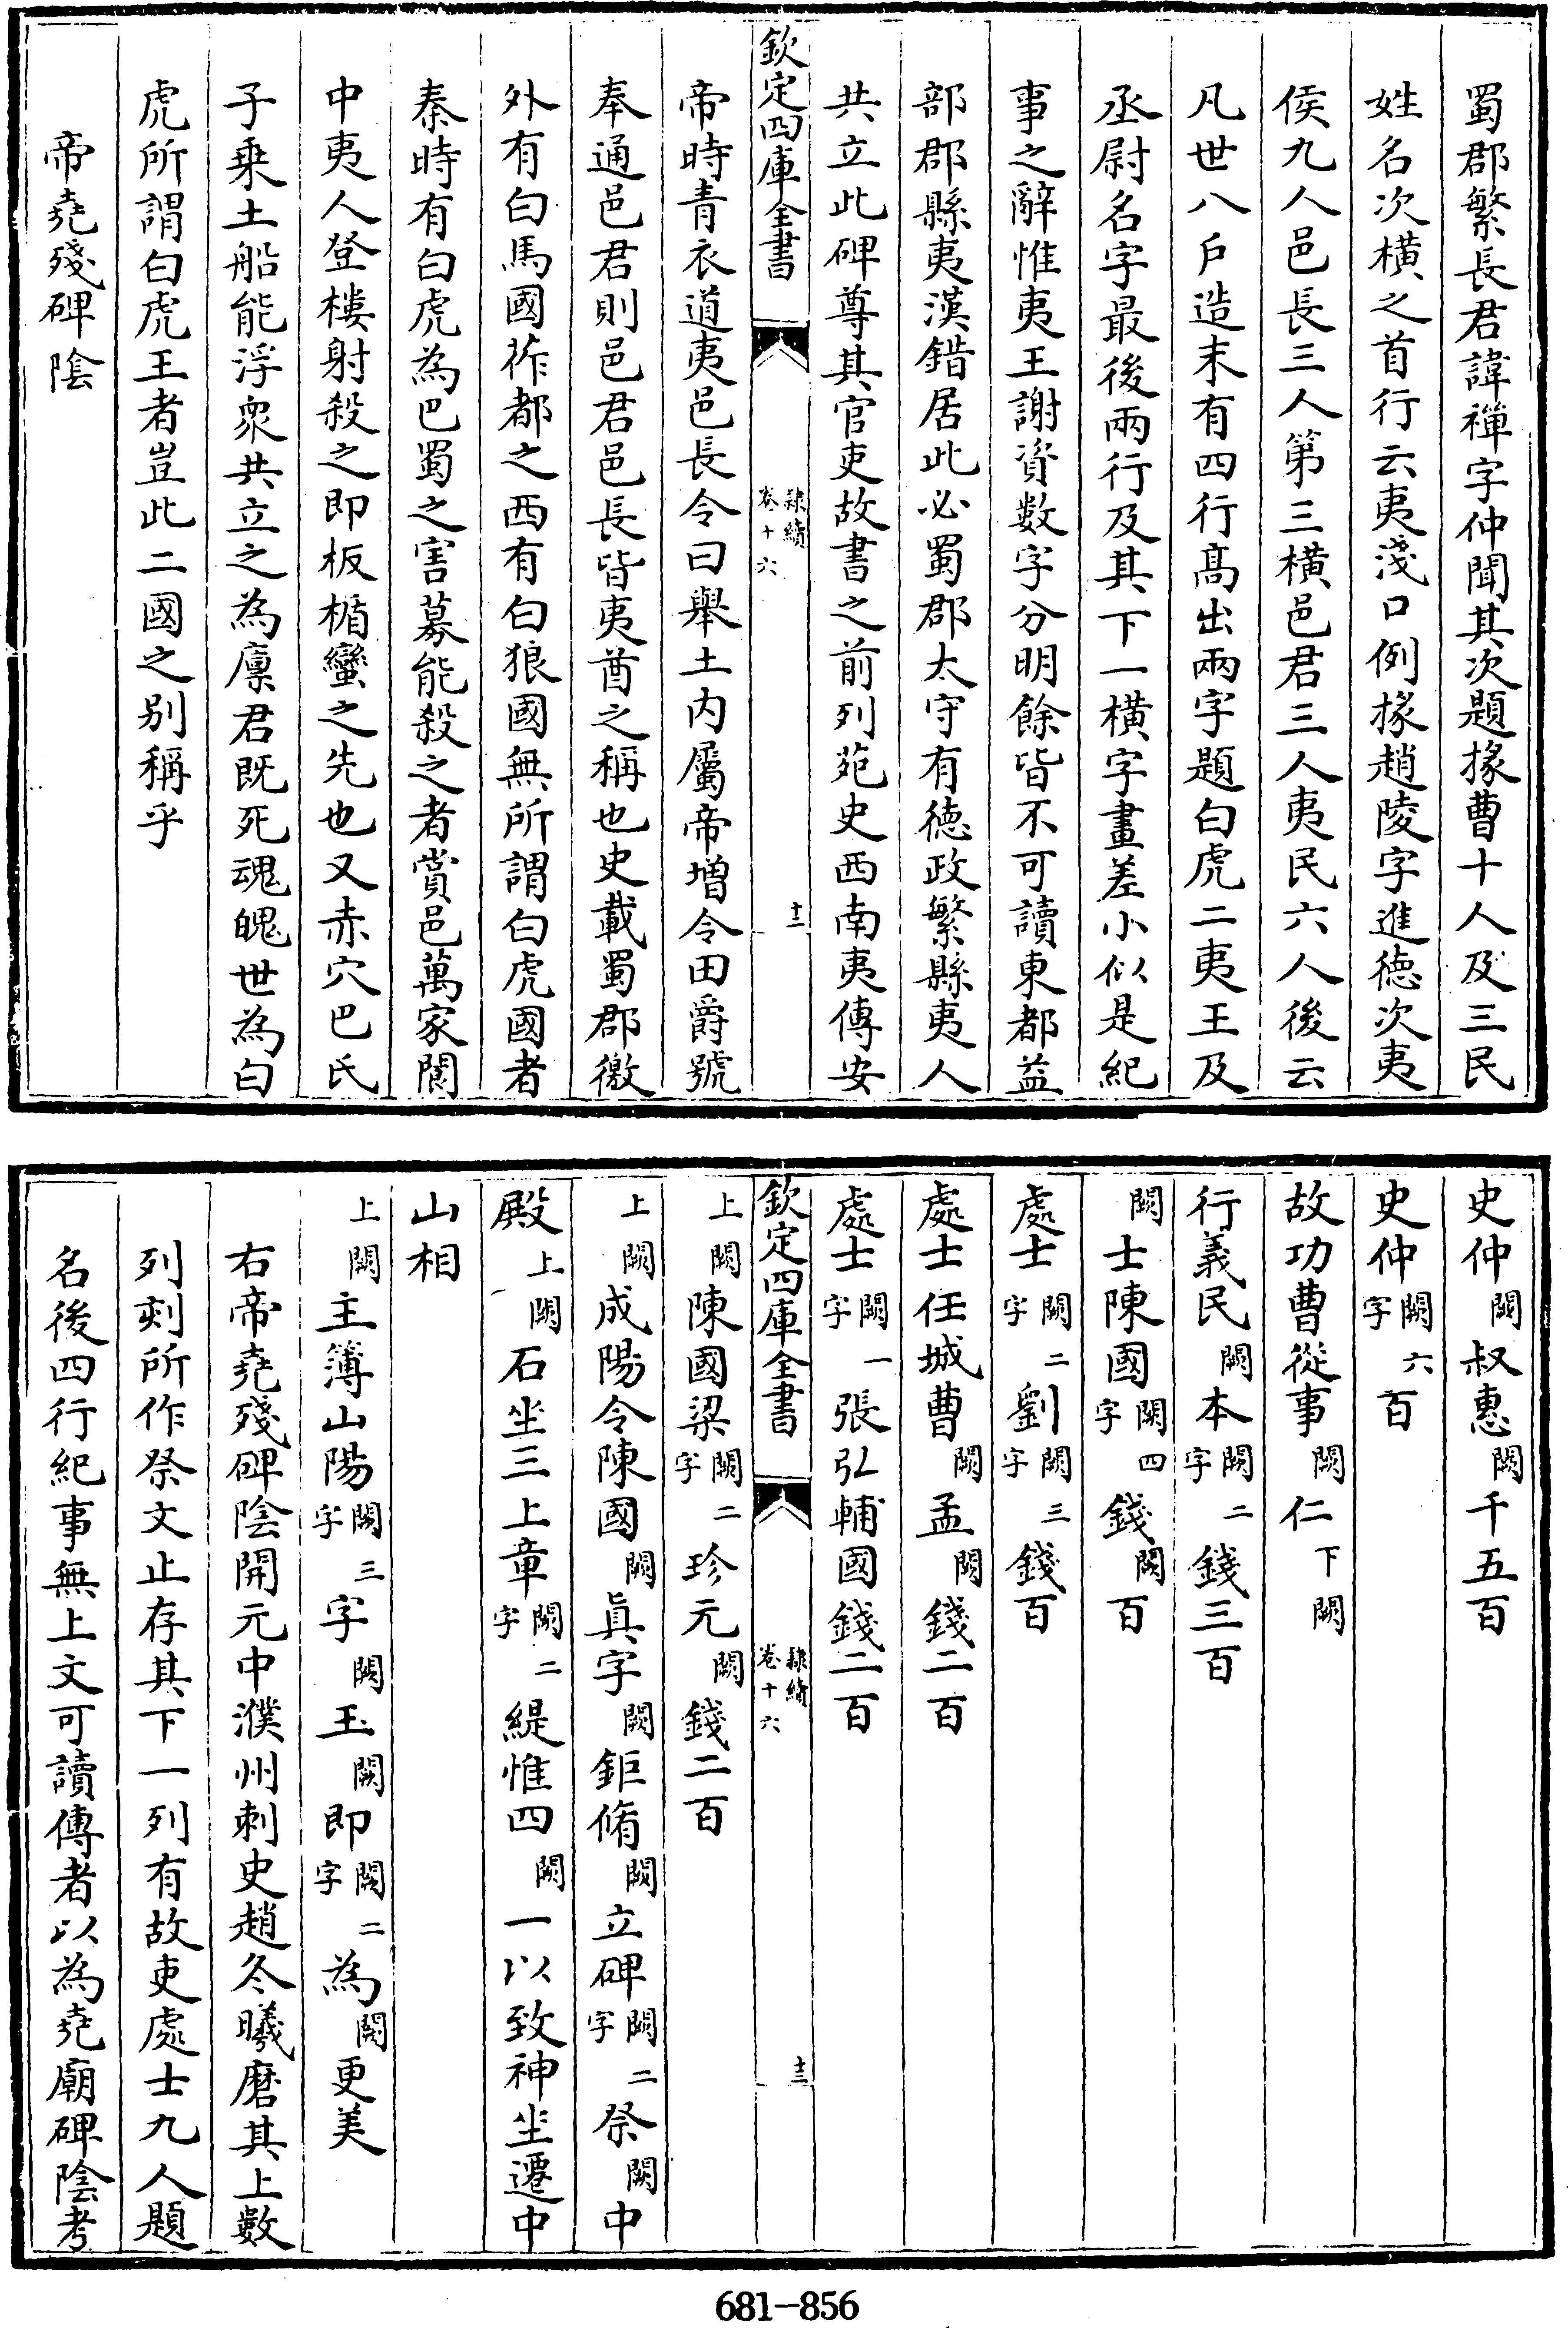 蜀郡繁長君諱禪字仲聞其次題掾曹十人及三民
姓名次横之首行云夷淺口例掾趙陵字進徳次夷
侯九人邑長三人第三横邑君三人夷民六人後云
凡世八户造末有四行髙出兩字題白虎二夷王及
丞尉名字最後兩行及其下一横字畫差小似是紀
事之辭惟夷王謝資數字分明餘皆不可讀東都益
部郡縣夷漢錯居此必蜀郡太守有徳政繁縣夷人
共立此碑尊其官吏故書之前列范史西南夷傳安
欽定四庫全書
隸續
卷十六
十二
帝時青衣道夷邑長令曰舉土内屬帝増令田爵號
奉通邑君則邑君邑長皆夷酋之稱也史載蜀郡徼
外有白馬國莋都之西有白狼國無所謂白虎國者
秦時有白虎為巴蜀之害募能殺之者賞邑萬家閬
中夷人登樓射殺之即板楯蠻之先也又赤穴巴氏
子乗土船能浮衆共立之為廪君既死魂魄世為白
虎所謂白虎王者豈此二國之别稱乎
帝堯殘碑陰
史仲闕叔惠闕千五百
史仲闕六字百
故功曹從事闕仁下闕
行義民闕本闕二字錢三百
闕士陳國闕四字錢闕百
處士闕二字劉闕三字錢百
處士任城曹闕孟闕錢二百
處士闕一字張弘輔國錢二百
欽定四庫全書
隸續
卷十六
十三
上闕陳國梁闕二字珍元闕錢二百
上闕成陽令陳國闕眞字闕鉅脩闕立碑闕二字祭闕中
殿上闕石坐三上章闕二字緹惟四闕一以致神坐遷中
山相
上闕主簿山陽闕三字字闕玉闕即闕二字為闕更美
右帝堯殘碑陰開元中濮州刺史趙冬曦磨其上數
列刻所作祭文止存其下一列有故吏處士九人題
名後四行紀事無上文可讀傳者以為堯廟碑陰考
681-856